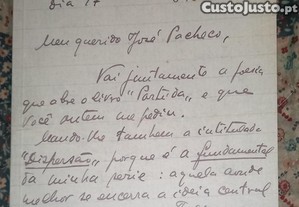 CustoJusto.pt
Dia 17
Meu querido José Pacheco,
Vai juntamente a poesia
que abre o livro "Partida", e que
Você ontem me pediu.
Mando-lhe tambem a intitulada
"Dispersão" porque é a fundamental
da minha serie: aquela aonde
melhor se encerra a ideia central